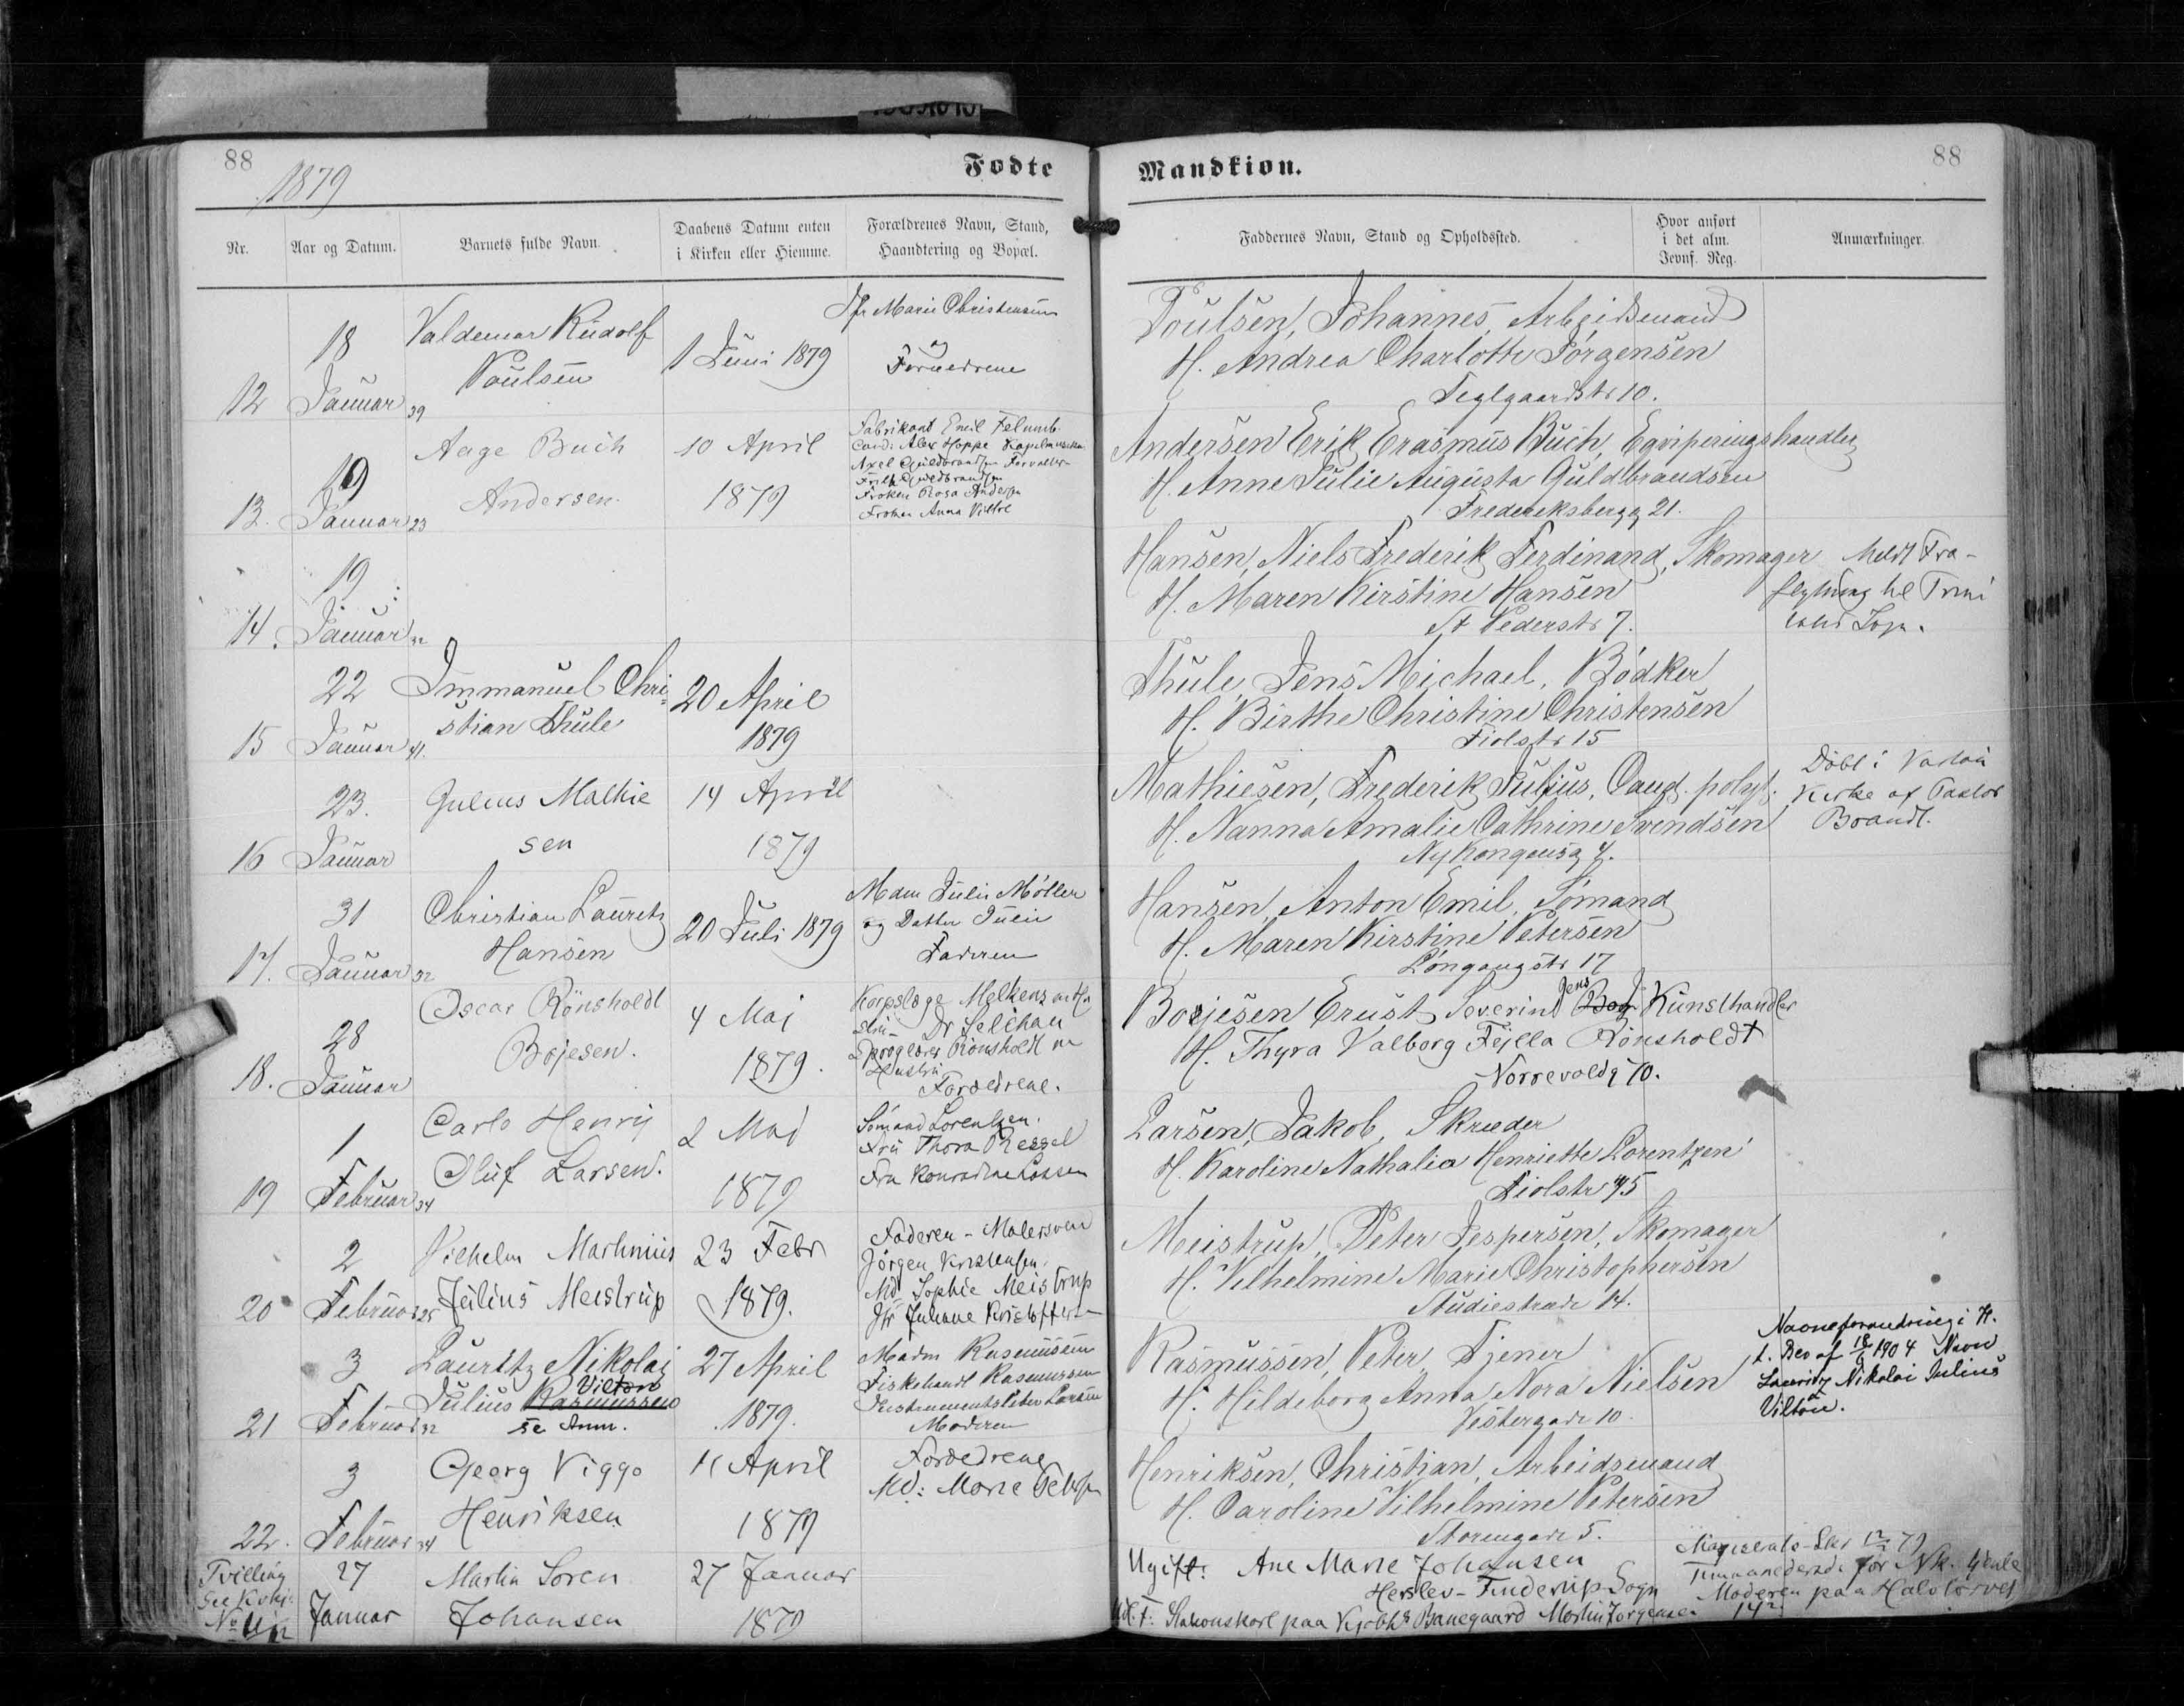 88
1879
Fødte
Nr.
Aar og Datum.
Barnets fulde Navn.
Daabens Datum enten
i Kirken eller Hiemme.
Forældrenes Navn, Stand,
Haandtering og Bopæl.
12
18
Januar 39
Valdemar Rudolf
Poulsen
1 Juni 1879
Jfr Marie Christensen
og
Forældrene
13.
19
Januar 23
Aage Buch
Andersen
10 April
1879
Fabrikant Emil
Cand: Alex Hoppe
Axel Guldbrandsen
Guldbrandsen
Frøken Rosa Andersen
Frøken Anna
14.
19
Januar 32
15
22
Januar 41.
Immanuel Chri
stian Thule
20 April
1879
16
23.
Januar
Julius Mathie
sen
14 April
1879
17.
31
Januar 32
Christian Lauritz
Hansen
20 Juli 1879
Mdm Julie Møller
og Datter Julie
Faderen
18.
28
Januar
Oscar Rönsholdt
Bojesen.
4 Maj
1879.
Korpslæge
Dr
Sproglærer Rönsholdt
Hustru
Forældrene.
19
1
Februar 34
Carlo Henry
Oluf Larsen.
2 Maj
1879
Sömand Lorentzen.
Fru Thora Ressel
Fru
20
2
Februar 25
Vilhelm Martinius
Julius Meistrup
23 Febr
1879.
Faderen - Malersvend
Jörgen Kristensen.
Md Sophie Meistrup
Jfr Juliane
21
3
Februar 32
Lauritz Nikolai
Viltön
Julius Rasmussen
se Anm.
27 April
1879.
Madm Rasmussen
Fiskehandl Rasmussen
Larsen
Moderen
22.
3
Februar 34
Georg Viggo
Henriksen
11 April
1879
Forældrene
Md: Marie
Tvilling
See Kvkj.
No 11
27
Januar
Martin Soren
Johansen
27 Januar
1879
Mandkiøn.
88
Faddernes Navn, Stand og Opholdssted.
Hvor anført
i det alm.
Jevnf. Reg.
Anmærkninger.
Poulsen, Johannes, Arbeidsmand
H. Andrea Charlotte Jörgensen
Teglgaardstr 10.
Andersen Erik Erasmus Buch, Egviperingshandler
H. Anne Julie Augusta Guldbrandsen
Frederiksbergg 21.
Hansen, Niels Frederik Ferdinand, Skomager
H. Maren Kirstine Hansen
St Pederstr 7.
Meldt Fra-
flytning til Trini
tatis Sogn.
Thule, Jens Michael, Bödker
H. Birthe Christine Christensen
Fiolstr 15
Mathiesen, Frederik Julius, Cand. polyt.
H. Nanna Amalie Cathrine Svendsen
Ny Kongensg 4.
Döbt i Vartou
Kirke af Pastor
Brandt.
Hansen, Anton Emil, Sömand
H. Maren Kirstine Petersen
Löngangstr 17
Jens
Bojesen Ernst Severin Kunsthandler
H. Thyra Valborg Fejlla Rönsholdt
Nörrevoldg 70.
Larsen, Jakob, Skræder
H. Karoline Nathalia Henriette Lorentzen
Fiolstr 45
Meistrup, Peter Jespersen, Skomager
H. Vilhelmine Marie Christophersen
Studiestræde 14.
Rasmussen, Peter, Tjener
H. Hildeborg Anna Nora Nielsen
Vestergade 10.
Navneforandring i H.
t. Bev af 18/6 1904 Navn
Lauritz Nikolai Julius
Viltön.
Henriksen, Christian, Arbeidsmand
H. Caroline Vilhelmine Petersen
Storengade 5.
Ugift: Ane Marie Johansen
Herslev - Finderup Sogn
Udl. F: Stationskarl paa Kjøbh's Banegaard Martin Jorgensen
Magistrats-Skr 12/2 79
Moderen paa Halstörvet
14